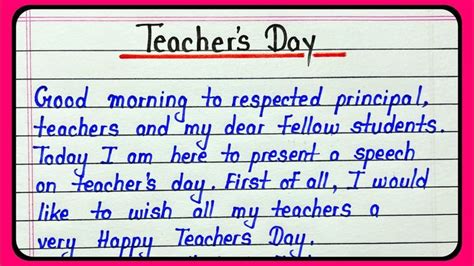 Teacher's Day
Good morning to respected principal,
teachers and my dear fellow students.
Today I am here to present a speech
on teacher's day. First of all, I would
like to wish all my teachers a
very Happy Teachers Day.